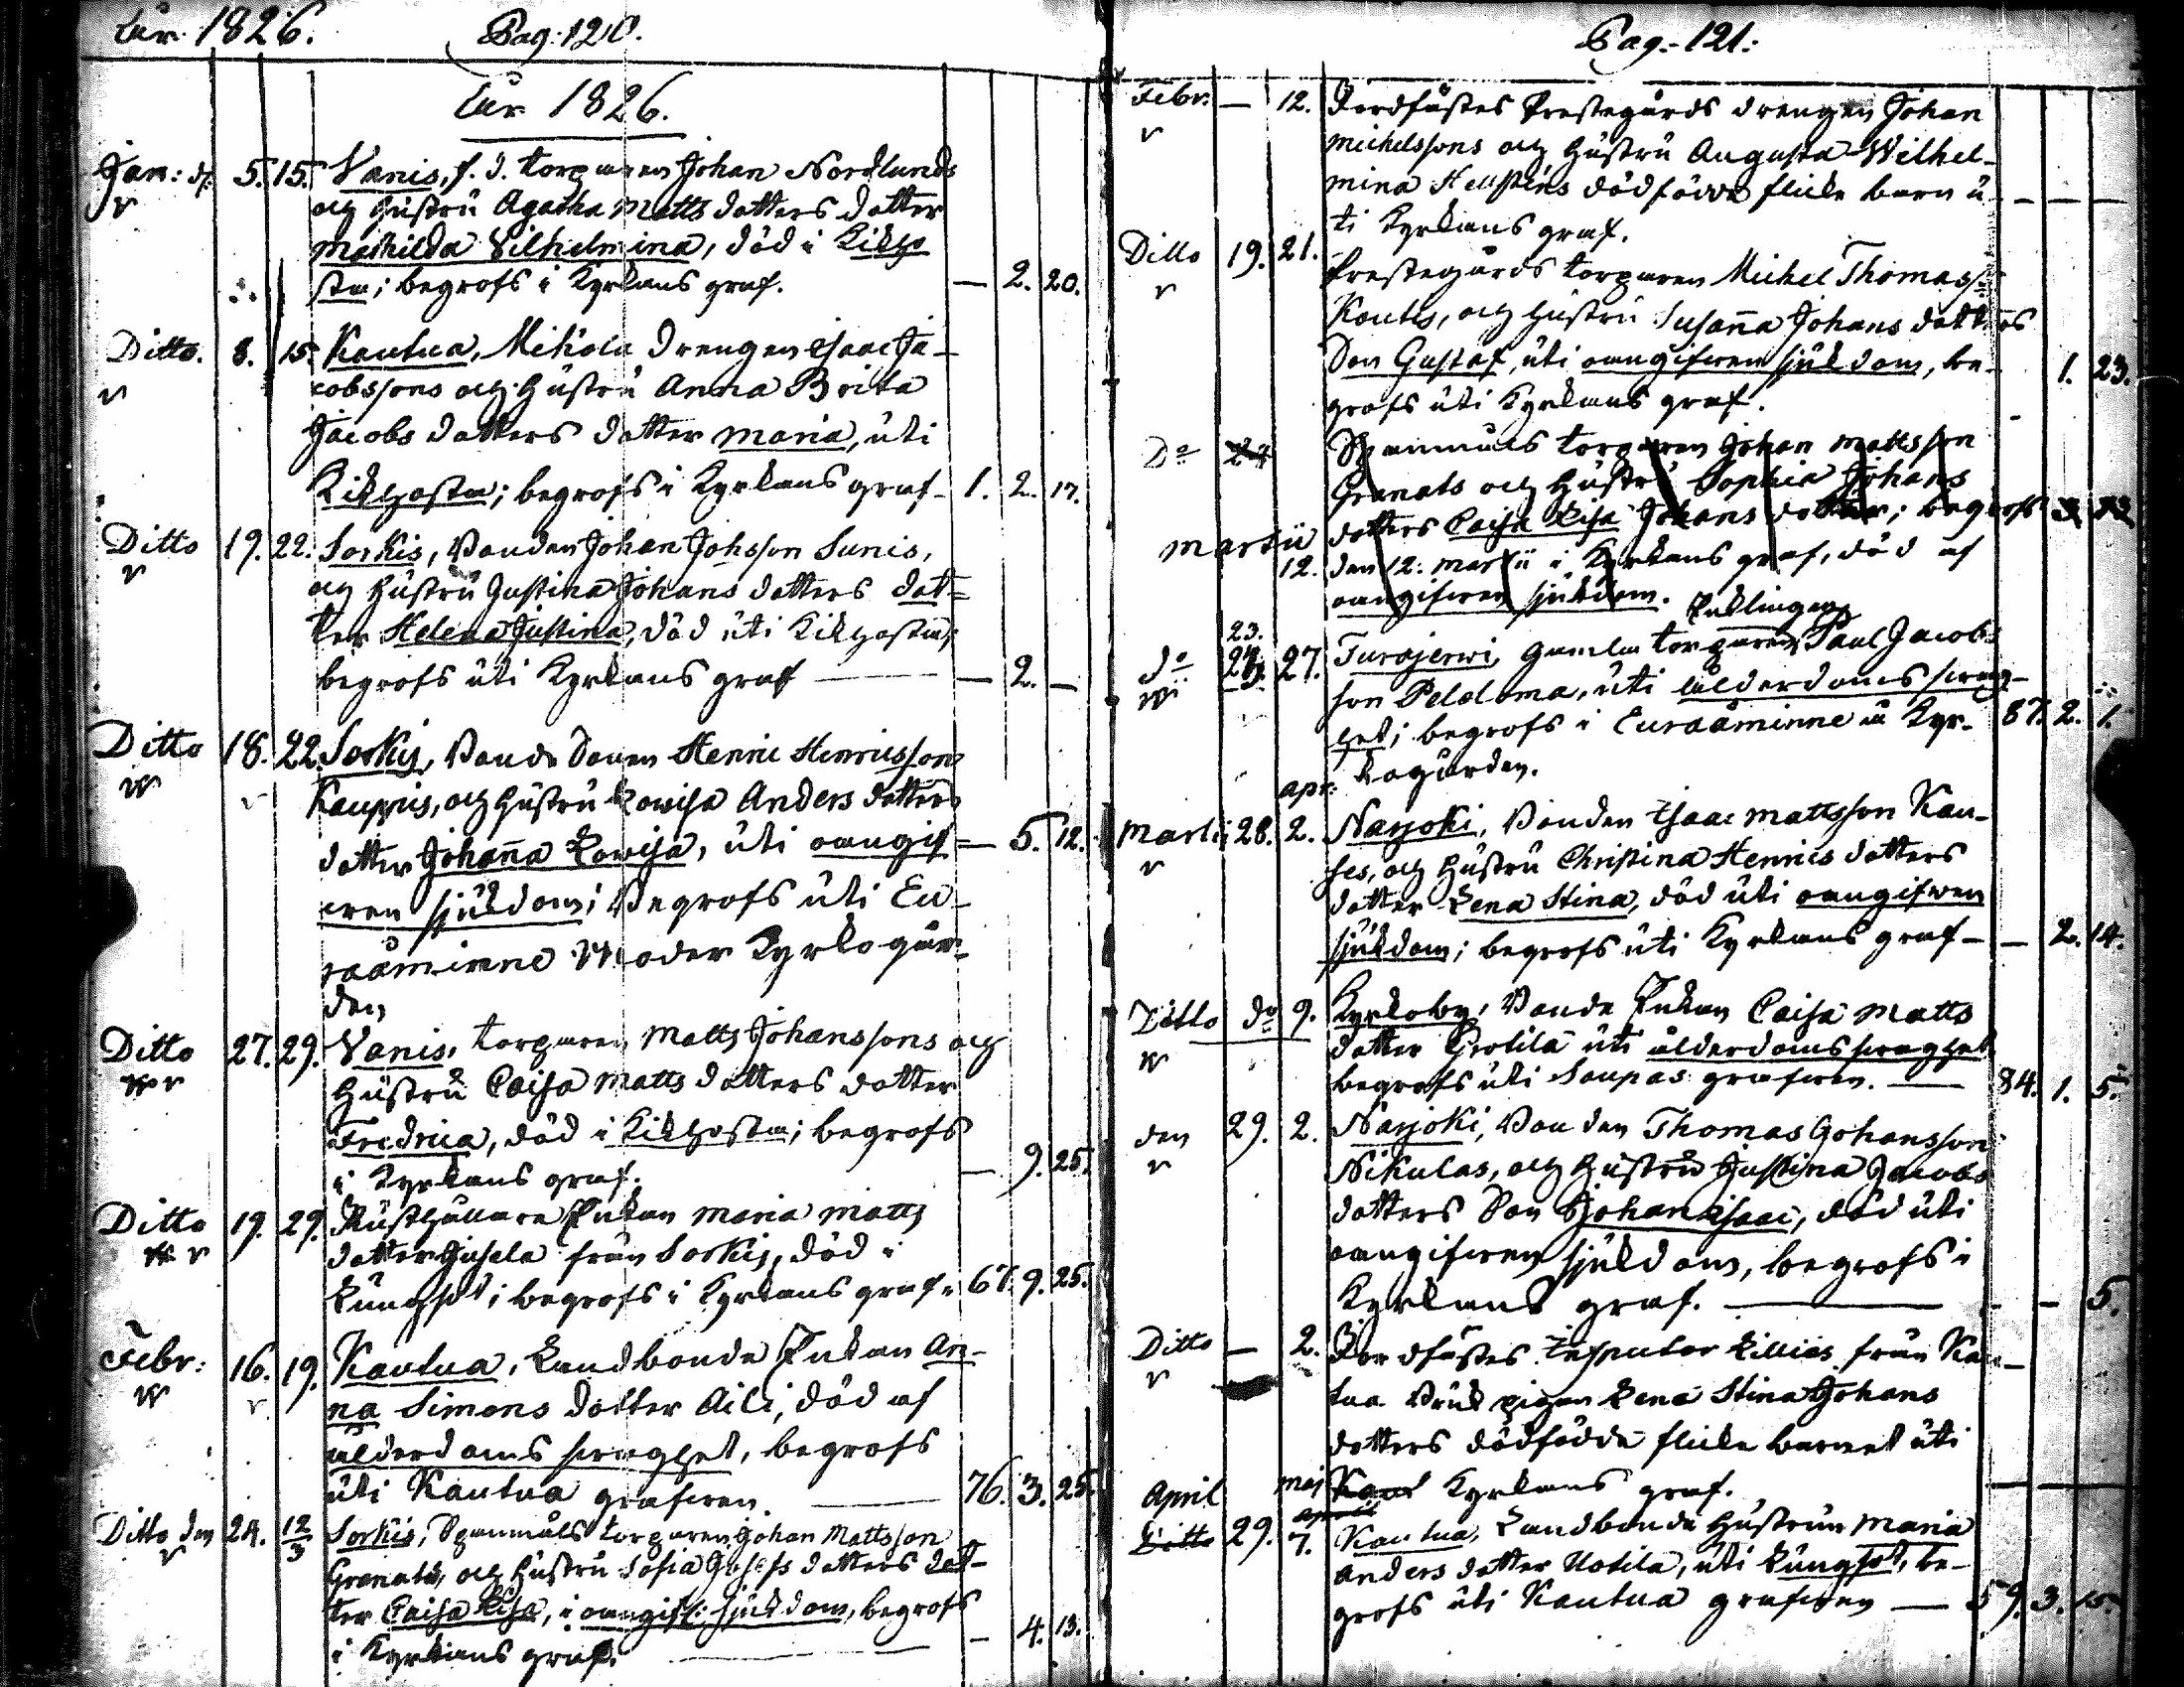 år 1826. Pag: 120.
år 1826.
Jan: d. 5. 15. Vanis, f. d. torparen Johan Nordlunds
och Hustru Agatha Matts dotters dotter
Mathilda Vilhelmina, död i Kikho
sta; begrofs i Kyrkans graf. — 2. 20.
Ditto. 8. 15. Kautua, Mikola drengen Isaac Ja-
cobssons och Hustru Anna Brita
Jacobs dotters dotter Maria, uti
Kikhosta; begrofs i Kyrkans graf - 1. 2. 17.
Ditto 19. 22. Sorkis, Bonden Johan Johsson Sunis,
och Hustru Justina Johans dotters dot=
ter Helena Justina, död uti Kikhosta;
begrofs uti Kyrkans graf — — 2. —
Ditto 18. 22. Sorkis, Bonde Sonen Henric Henricsson
Kauppis, och Hustru Lowisa Anders dotters
dotter Johanna Lowisa, uti oangif= — 5. 12.
wen sjukdom; Begrofs uti Eu-
raåminne Moder Kyrkogår-
den
Ditto 27. 29. Vanis, torparen Matts Johanssons och
Hustru Caisa Matts dotters dotter
Fredrica, död i Kikhosta; begrofs
i Kyrkans graf. — 9. 25.
Ditto 19. 29. Rusthållare Enkan Maria Matts
dotter Gusela från Sorkis, död i
Lungsot; begrofs i Kyrkans graf. 67. 9. 25.
Febr: 16. 19. Kautua, Landbonde Enkan An-
na Simons dotter Aili, död af
ålderdoms swaghet, begrofs
uti Kautua grafwen. — 76. 3. 25.
Ditto den 24. 12/3 Sorkis, Spanmåls torparen Johan Mattsson
Granats, och Hustru Sofia Josefs dotters dot-
ter Caisa Lisa, i oangif: sjukdom, begrofs
i Kyrkans graf. — — 4. 13.
Pag: 121:
Febr: — 12. Jordfästes Prestegårds drengen Johan
Michelssons och Hustru Augusta Wilhel-
mina dödfödda flicke barn u- — — —
ti Kyrkans graf.
Ditto 19. 21. Prestegårds torparen Michel Thomass:
Koutis, och Hustru Susanna Johans dotters
Son Gustaf, uti oangifwen sjukdom, be- 1. 23.
grofs uti Kyrkans graf.
Do 24 Spanmåls torparen Johan Mattsson
Granats och Hustru Sophia Johans
dotters Caisa Lisa Johans dotter; begrofs
Martii 12. den 12. Martii i Kyrkans graf, död af
oangifwen sjukdom.
Enklingen
23.
do 24. 27. Turajerwi, Gamla torparen Paul Jacobs
son Peldoma, uti ålderdoms swag-
het; begrofs i Euraåminne å Kyr- 87. 2. 1.
kogården.
apr:
Martii 28. 2. Narjoki, Bonden Isaac Mattsson Kau-
ses, och Hustru Christina Henrics dotters
dotter Lena Stina, död uti oangifwen
sjukdom; begrofs uti Kyrkans graf — — 2. 14.
Ditto do 9. Kyrkoby, Bonde Enkan Caisa Matts
dotter Protila uti ålderdoms swaghet
begrofs uti Saupas grafwen. — 84. 1. 5.
den 29. 2. Narjoki, Bonden Thomas Johansson
Nikulas, och Hustru Justina Jacobs
dotters Son Johan Isaac, död uti
oangifwen sjukdom, begrofs i
Kyrkans graf. — - — 5.
Ditto — 2. Jordfästes Inspector Lillies från Kau-
tua Bruk pigan Lena Stina Johans
dotters dödfödda flicke barnet uti
Kyrkans graf. —
April maj
april
Ditto 29. 7. Kautua, Landbonde Hustrun Maria
Anders dotter Uotila, uti Lungsot, be-
grofs uti Kautua grafwen — 59. 3. 15.